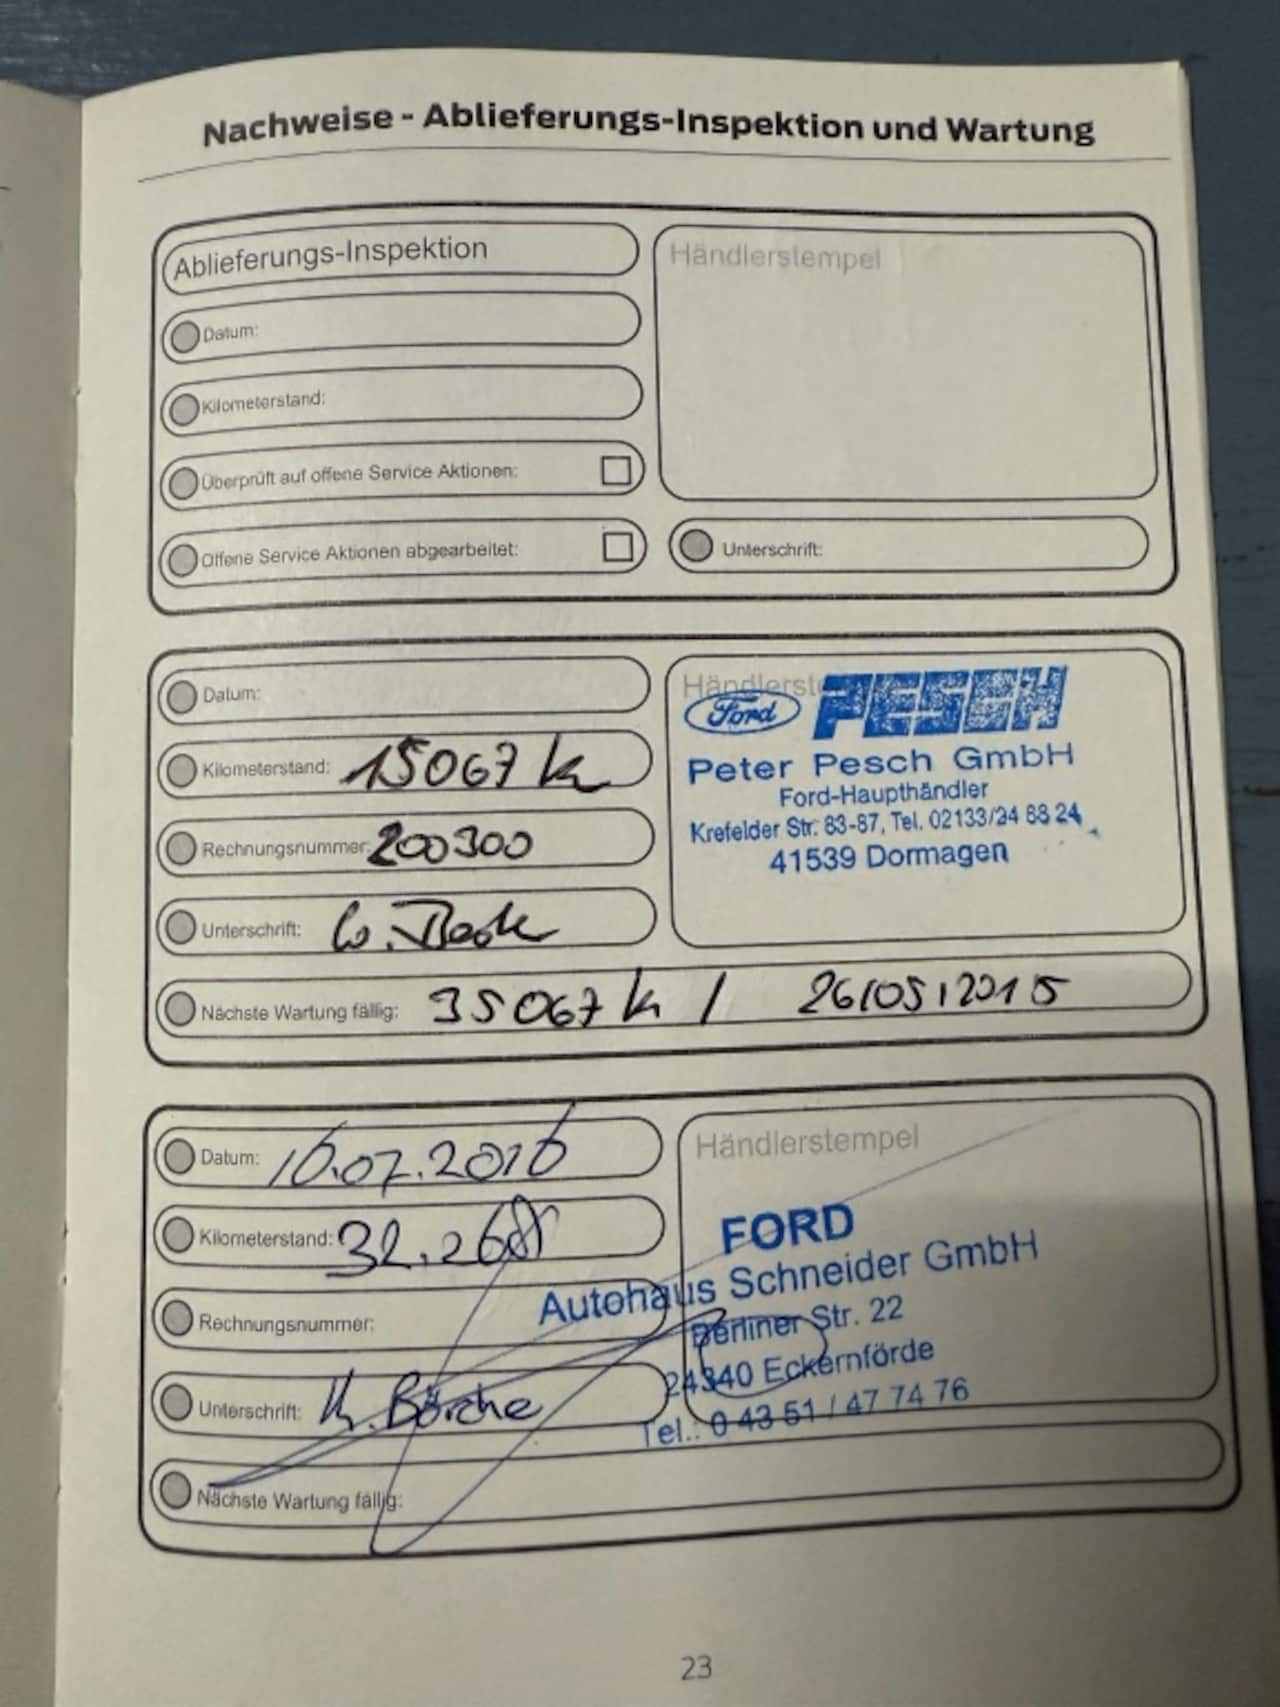 Nachweise - Ablieferungs-Inspektion und Wartung
Ablieferungs-Inspektion
Händlerstempel
Datum:
Kilometerstand:
Überprüft auf offene Service Aktionen:
Offene Service Aktionen abgearbeitet:
Unterschrift:
Datum:
Händlerst
Ford PESCH
Peter Pesch GmbH
Ford-Haupthändler
Krefelder Str. 83-87, Tel. 02133/24 88 24
41539 Dormagen
Kilometerstand: 15067 k
Rechnungsnummer: 200300
Unterschrift:
Nächste Wartung fällig: 35067 k / 26/05/2015
Datum: 16.07.2016
Händlerstempel
Kilometerstand: 32.268
FORD
Autohaus Schneider GmbH
Berliner Str. 22
24340 Eckernförde
Tel.: 0 43 51 / 47 74 76
Rechnungsnummer:
Unterschrift:
Nächste Wartung fällig:
23